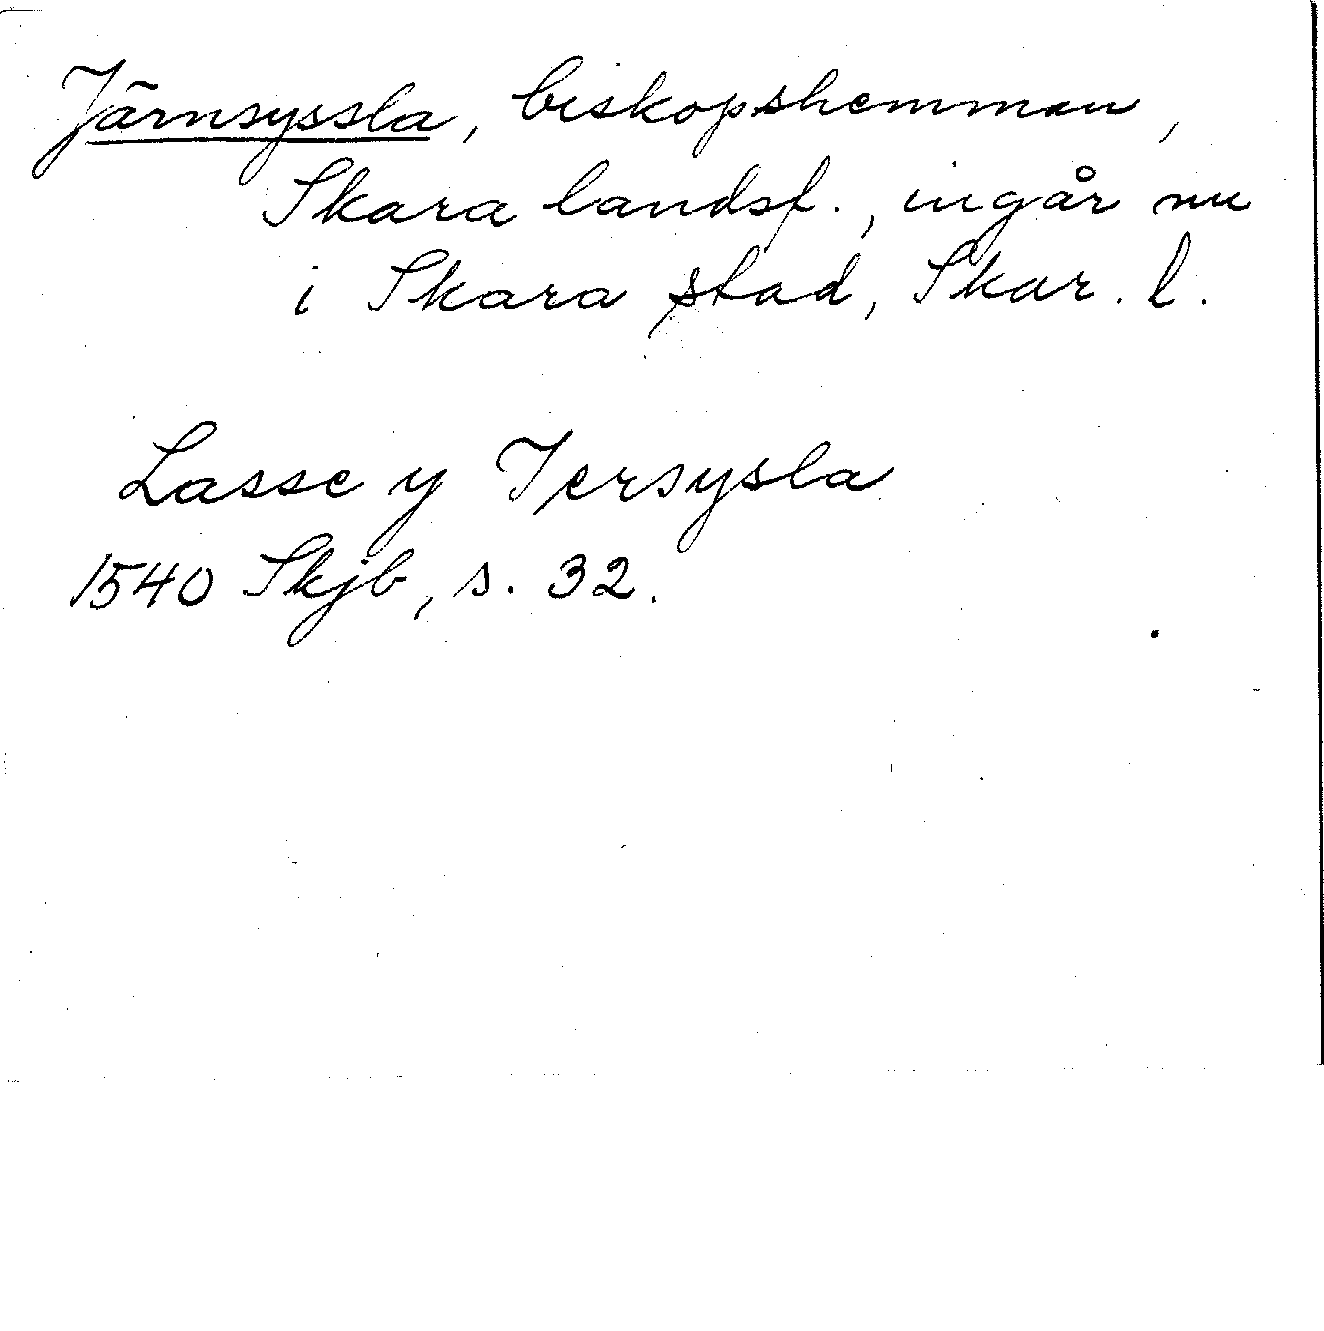 Järnsyssla, biskopshemman,
Skara landsf., ingår nu
i Skara stad, Skar. l.
Lasse y Jersysla
1540 Skjb, s. 32.